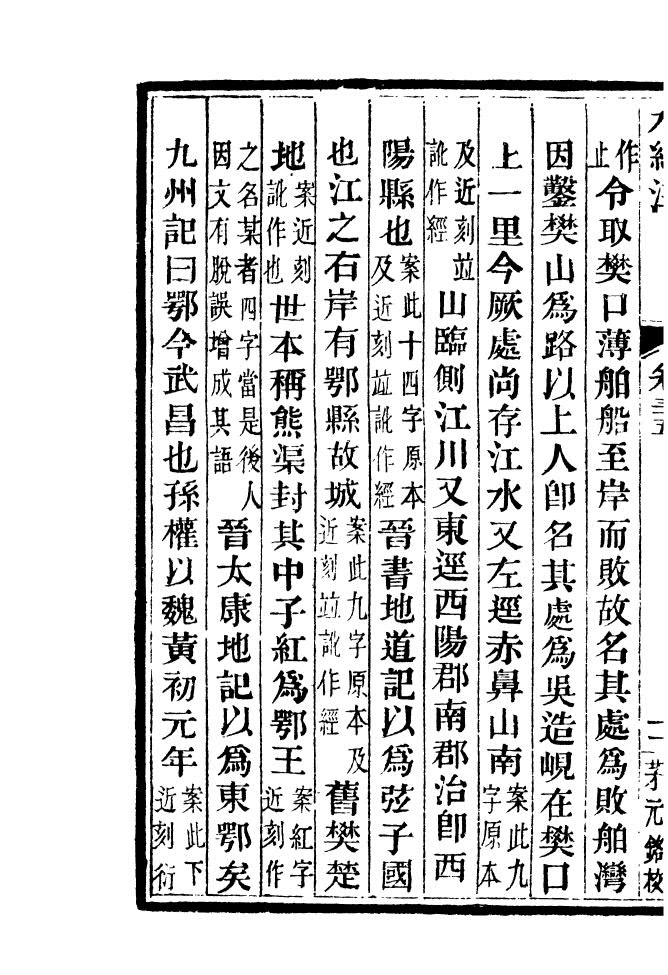 作止令取樊口薄舶船至岸而敗故名其處爲敗舶灣
因鑿樊山爲路以上人卽名其處爲吳造峴在樊口
上一里今厥處尚存江水又左逕赤鼻山南案此九字原本
及近刻竝訛作經山臨側江川又東逕西陽郡南郡治卽西
陽縣也案此十四字原本及近刻竝訛作經晉書地道記以爲弦子國
也江之右岸有鄂縣故城案此九字原本及近刻竝訛作經舊樊楚
地案近刻訛作也世本稱熊渠封其中子紅爲鄂王案紅字近刻作
之名某者四字當是後人因文有脫誤增成其語晉太康地記以爲東鄂矣
九州記曰鄂今武昌也孫權以魏黃初元年案此下近刻衍